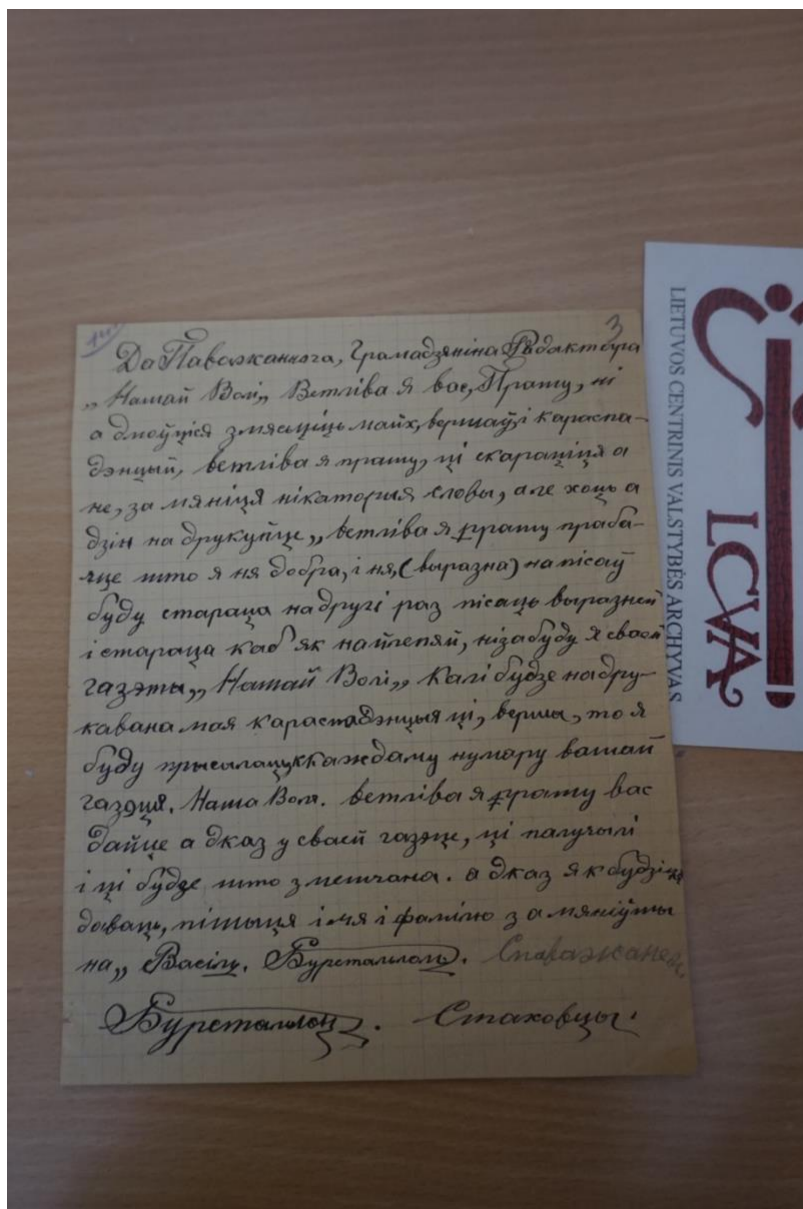 3
Да Паважаннага, Грамадзяніна Рэдактара
„Нашай Волі„ Ветліва я вас, Прашу, ні
а дмоўціся змясьціць маіх, вершаў, і караспа-
дэнцый, ветліва я прашу, ці скараціця а
не, за мяніця нікаторыя словы, але хоць а
дзін на друкуйце „ ветліва я прашу праба-
чце што я ня добра, і ня, (выразна) на пісаў
буду стараца на другі раз пісаць выразней
і стараца каб як найлепяй, нізабуду я сваей
газэты „ Нашай Волі „ Калі будзе надру-
кавана мая караспадэнцыя ці, верш, то я
буду прысылаць каждаму нумару вашай
газэця. Наша Воля. ветліва я прашу вас
дайце а дказ у сваей газэце, ці палучылі
і ці будзе што змешчана. а дказ як будзіця
даваць, пішыця імя і фамілію за мяніўшы
на „ Васіль. Бурштамлоць. С паважанем.
Бурштамлоць. Стаховцы.
LIETUVOS CENTRINIS VALSTYBĖS ARCHYVAS
LCVA